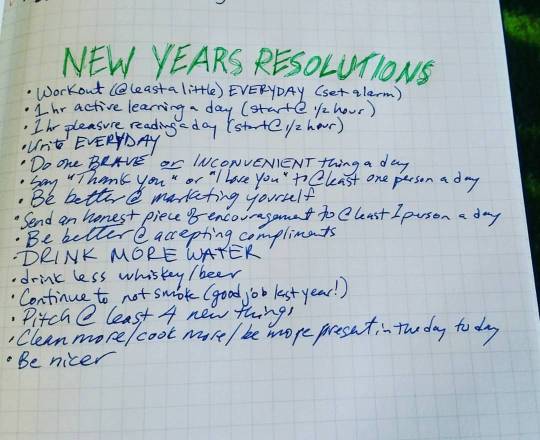 NEW YEARS RESOLUTIONS
• Workout (@ least a little) EVERYDAY (set alarm)
• 1 hr active learning a day (start @ 1/2 hour)
• 1 hr pleasure reading a day (start @ 1/2 hour)
• Write EVERYDAY
• Do one BRAVE or INCONVENIENT thing a day
• Say "Thank you" or "I love you" to @ least one person a day
• Be better @ marketing yourself
• Send an honest piece of encouragement to @ least 1 person a day
• Be better @ accepting compliments
• DRINK MORE WATER
• drink less whiskey/beer
• Continue to not smoke (good job last year!)
• Pitch @ least 4 new things
• Clean more/cook more/be more present in the day to day
• Be nicer